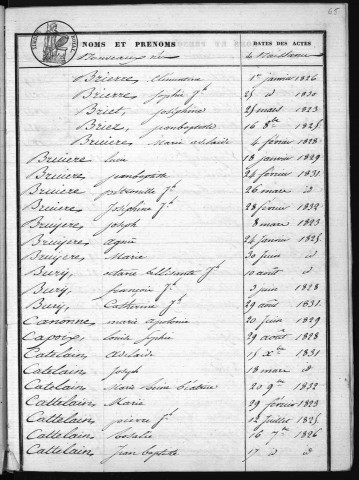 65
NOMS ET PRENOMS DATES DES ACTES
de Naissance
Brierre, Clémence 1er janvier 1826
Brierre Sophie fe 25 d 1830
Briet, joséphine 25 mars 1823
Briez, jeanbaptiste 16 8bre 1825
Bruiere Marie adelaïde 4 février 1828
Bruiere luce 18 janvier 1829
Bruiere jeanbaptiste 26 février 1831
Bruiere petronille fe 26 mars d
Bruiere Joséphine fe 28 février 1832
Bruyere joseph 8 mars 1823
Bruyere agnès 24 janvier 1825
Bruyere Marie 30 juin d
Bury, Marie fe 10 août d
Bury, françois fe 3 juin 1828
Bury, Catherine fe 29 août 1831
Canonne, marie apolonie 20 juin 1829
Capoix, louise Sophie 29 août 1828
Catelain Adelaïde 15 Xbre 1831
Catelain Joseph 18 mars d
Catelain Marie louise 20 9bre 1832
Cattelain Marie 29 février 1823
Cattelain pierre fe 12 juillet 1825
Cattelain rosalie 16 7bre 1826
Cattelain Jean baptiste 17 d d